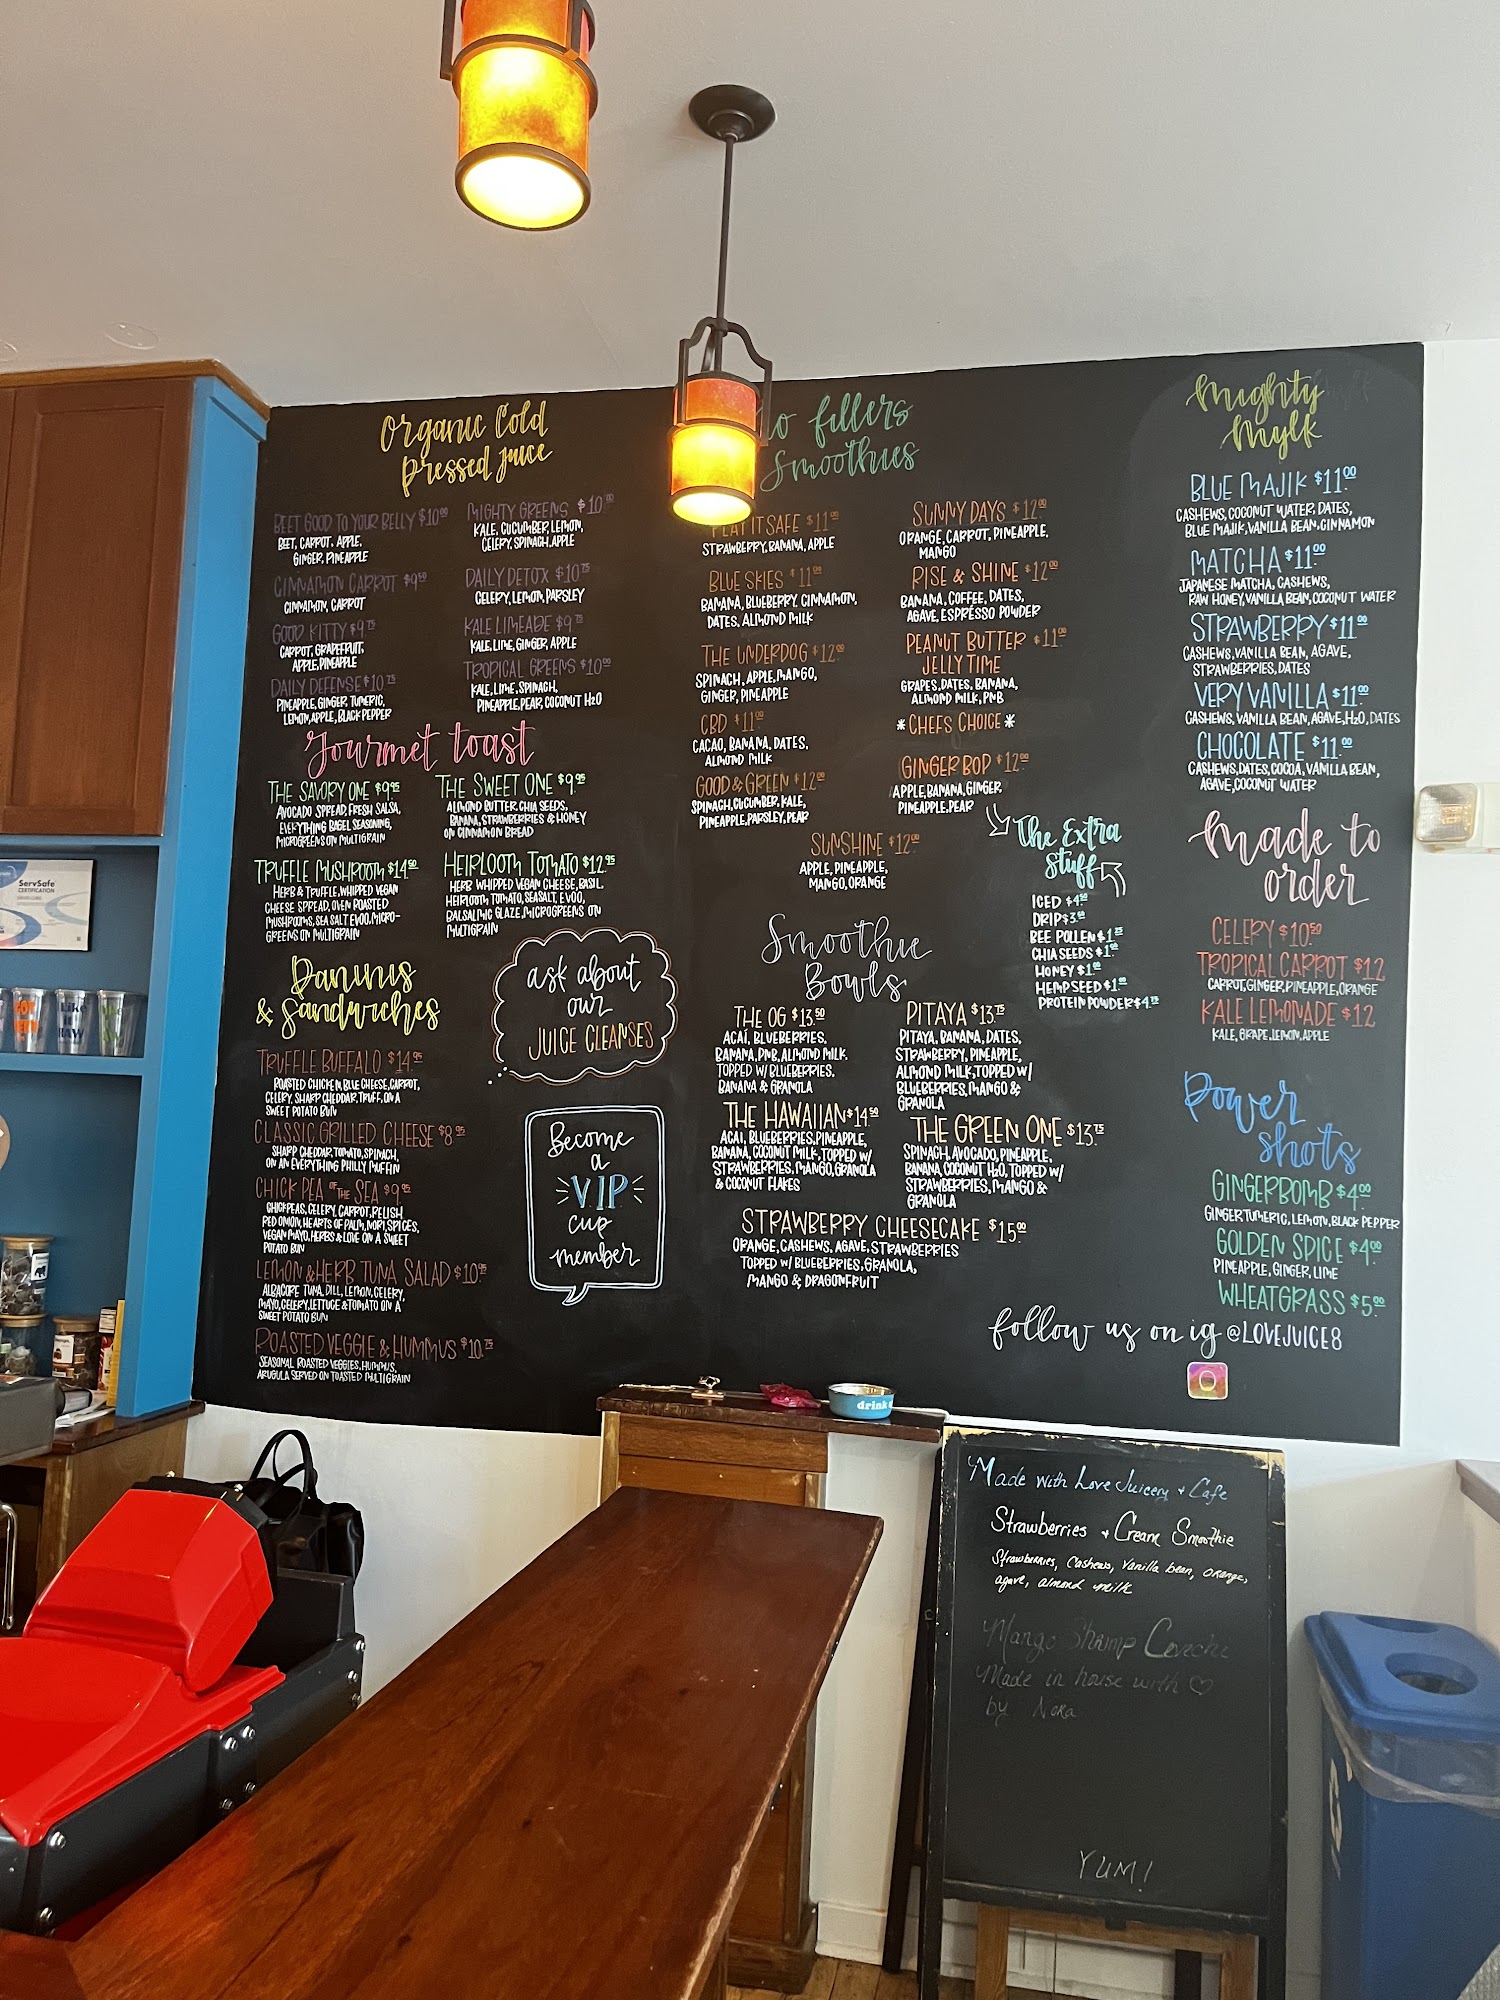 Organic Cold
Pressed Juice
BEET GOOD TO YOUR BELLY $10.00
BEET, CARROT, APPLE,
GINGER, PINEAPPLE
CINNAMON CARROT $9.50
CINNAMON, CARROT
GOOD KITTY $9.75
CARROT, GRAPEFRUIT,
APPLE, PINEAPPLE
DAILY DEFENSE $10.75
PINEAPPLE, GINGER, TUMERIC,
LEMON, APPLE, BLACK PEPPER
MIGHTY GREENS $10.00
KALE, CUCUMBER, LEMON,
CELERY, SPINACH, APPLE
DAILY DETOX $10.75
CELERY, LEMON, PARSLEY
KALE LIMEADE $9.75
KALE, LIME, GINGER, APPLE
TROPICAL GREENS $10.00
KALE, LIME, SPINACH,
PINEAPPLE, PEAR, COCONUT H2O
Gourmet toast
THE SAVORY ONE $9.95
AVOCADO SPREAD, FRESH SALSA,
EVERYTHING BAGEL SEASONING,
MICROGREENS ON MULTIGRAIN
THE SWEET ONE $9.95
ALMOND BUTTER, CHIA SEEDS,
BANANA, STRAWBERRIES & HONEY
ON CINNAMON BREAD
TRUFFLE MUSHROOM $14.50
HERB & TRUFFLE, WHIPPED VEGAN
CHEESE SPREAD, OVEN ROASTED
MUSHROOMS, SEA SALT EVOO, MICRO-
GREENS ON MULTIGRAIN
HEIRLOOM TOMATO $12.95
HERB WHIPPED VEGAN CHEESE, BASIL,
HEIRLOOM TOMATO, SEASALT, EVOO,
BALSALMIC GLAZE, MICROGREENS ON
MULTIGRAIN
Paninis
& Sandwiches
TRUFFLE BUFFALO $14.95
ROASTED CHICKEN, BLUE CHEESE, CARROT,
CELERY, SHARP CHEDDAR, TRUFF, ON A
SWEET POTATO BUN
CLASSIC GRILLED CHEESE $8.95
SHARP CHEDDAR, TOMATO, SPINACH,
ON AN EVERYTHING PHILLY MUFFIN
CHICK PEA OF THE SEA $9.95
CHICKPEAS, CELERY, CARROT, RELISH,
RED ONION, HEARTS OF PALM, NORI, SPICES,
VEGAN MAYO, HERBS & LOVE ON A SWEET
POTATO BUN
LEMON & HERB TUNA SALAD $10.95
ALBACORE TUNA, DILL, LEMON, CELERY,
MAYO, CELERY, LETTUCE & TOMATO ON A
SWEET POTATO BUN
ROASTED VEGGIE & HUMMUS $10.75
SEASONAL ROASTED VEGGIES, HUMMUS,
ARUGULA SERVED ON TOASTED MULTIGRAIN
ask about
our
JUICE CLEANSES
Become
a
V.I.P
cup
member
fillers
Smoothies
PLAY IT SAFE $11.00
STRAWBERRY, BANANA, APPLE
BLUE SKIES $11.00
BANANA, BLUEBERRY, CINNAMON,
DATES, ALMOND MILK
THE UNDERDOG $12.00
SPINACH, APPLE, MANGO,
GINGER, PINEAPPLE
CBD $11.00
CACAO, BANANA, DATES,
ALMOND MILK
GOOD & GREEN $12.00
SPINACH, CUCUMBER, KALE,
PINEAPPLE, PARSLEY, PEAR
SUNNY DAYS $12.00
ORANGE, CARROT, PINEAPPLE,
MANGO
RISE & SHINE $12.00
BANANA, COFFEE, DATES,
AGAVE, ESPRESSO POWDER
PEANUT BUTTER $11.00
JELLY TIME
GRAPES, DATES, BANANA,
ALMOND MILK, PNB
*CHEFS CHOICE*
GINGER BOP $12.00
APPLE, BANANA, GINGER
PINEAPPLE, PEAR
SUNSHINE $12.00
APPLE, PINEAPPLE,
MANGO, ORANGE
The Extra
Stuff
ICED $4.50
DRIP $3.50
BEE POLLEN $1.25
CHIA SEEDS $1.00
HONEY $1.00
HEMP SEED $1.00
PROTEIN POWDER $4.75
Smoothie
Bowls
THE OG $13.50
AÇAÍ, BLUEBERRIES,
BANANA, PNB, ALMOND MILK,
TOPPED W/ BLUEBERRIES,
BANANA & GRANOLA
PITAYA $13.75
PITAYA, BANANA, DATES,
STRAWBERRY, PINEAPPLE,
ALMOND MILK, TOPPED W/
BLUEBERRIES, MANGO &
GRANOLA
THE HAWAIIAN $14.50
ACAI, BLUEBERRIES, PINEAPPLE,
BANANA, COCONUT MILK, TOPPED W/
STRAWBERRIES, MANGO, GRANOLA
& COCONUT FLAKES
THE GREEN ONE $13.75
SPINACH, AVOCADO, PINEAPPLE,
BANANA, COCONUT H2O, TOPPED W/
STRAWBERRIES, MANGO &
GRANOLA
STRAWBERRY CHEESECAKE $15.00
ORANGE, CASHEWS, AGAVE, STRAWBERRIES
TOPPED W/ BLUEBERRIES, GRANOLA,
MANGO & DRAGONFRUIT
Mighty
Mylk
BLUE MAJIK $11.00
CASHEWS, COCONUT WATER, DATES,
BLUE MAJIK, VANILLA BEAN, CINNAMON
MATCHA $11.00
JAPANESE MATCHA, CASHEWS,
RAW HONEY, VANILLA BEAN, COCONUT WATER
STRAWBERRY $11.00
CASHEWS, VANILLA BEAN, AGAVE,
STRAWBERRIES, DATES
VERY VANILLA $11.00
CASHEWS, VANILLA BEAN, AGAVE, H2O, DATES
CHOCOLATE $11.00
CASHEWS, DATES, COCOA, VANILLA BEAN,
AGAVE, COCONUT WATER
Made to
order
CELERY $10.50
TROPICAL CARROT $12
CARROT, GINGER, PINEAPPLE, ORANGE
KALE LEMONADE $12
KALE, GRAPE, LEMON, APPLE
Power
shots
GINGERBOMB $4.00
GINGER, TUMERIC, LEMON, BLACK PEPPER
GOLDEN SPICE $4.00
PINEAPPLE, GINGER, LIME
WHEATGRASS $5.00
follow us on ig @LOVEJUICE8
ServSafe
CERTIFICATION
drink
Made with Love Juicery + Cafe
Strawberries + Cream Smoothie
Strawberries, Cashews, Vanilla bean, orange,
agave, almond milk
Mango Shrimp Ceveche
Made in house with ♡
by Nora
YUM!